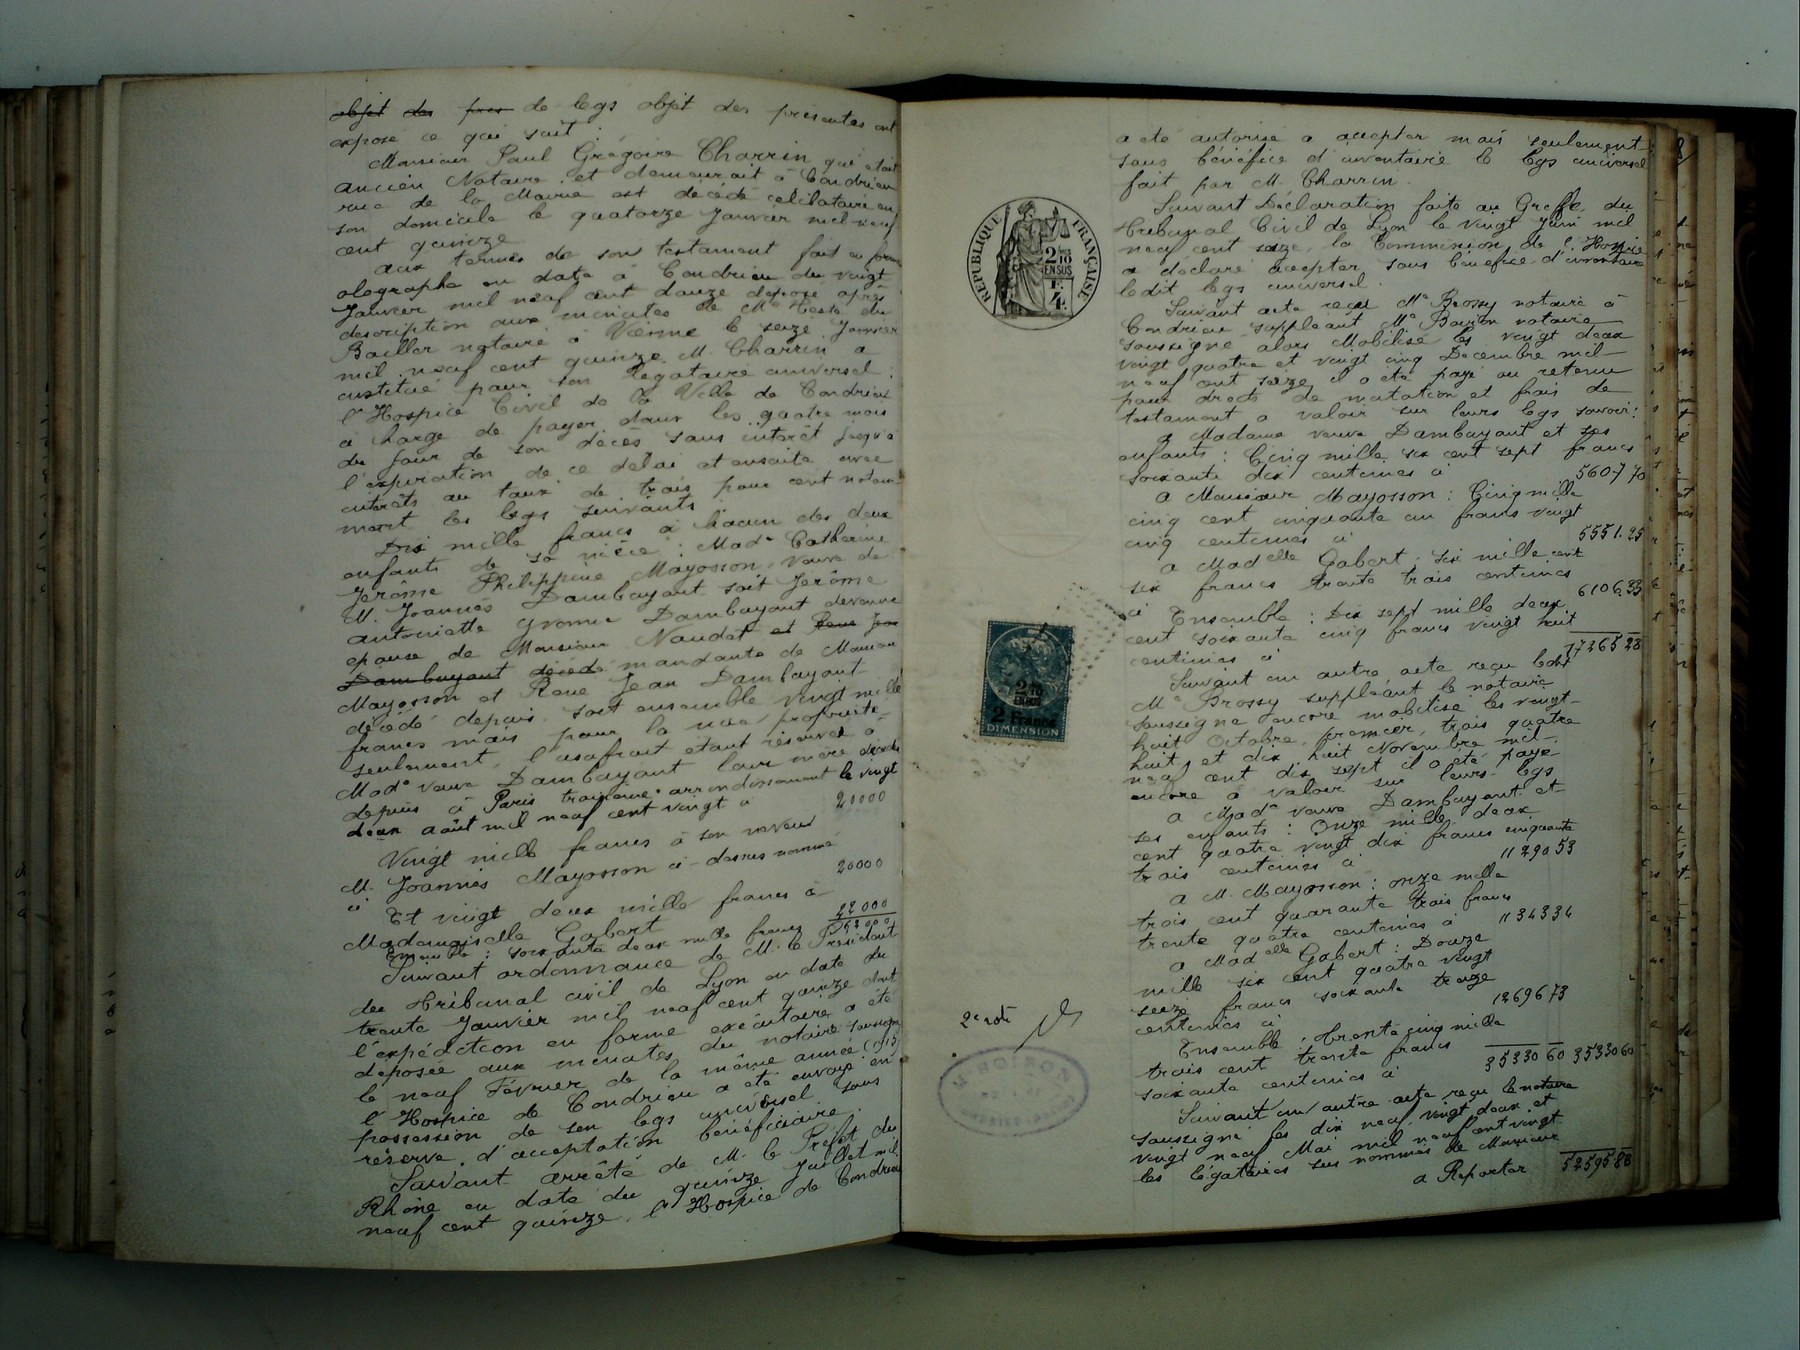 objet des pres de legs objet des présentes ont
exposé ce qui suit :
Monsieur Paul Grégoire Charrin qui était
ancien Notaire et demeurait à Condrieu
rue de la Mairie est décédé célibataire en
son domicile le quatorze Janvier mil neuf
cent quinze
Aux termes de son testament fait en forme
olographe en date à Condrieu du vingt
Janvier mil neuf cent douze déposé après
description aux minutes de Me Teste du
Bailler notaire à Vienne le seize Janvier
mil neuf cent quinze M. Charrin a
institué pour son légataire universel :
l'Hospice Civil de la Ville de Condrieu
à charge de payer dans les quatre mois
du jour de son décès sans intérêt jusqu'à
l'expiration de ce délai et ensuite avec
intérêts au taux de trois pour cent notam
ment les legs suivants
Dix mille francs à chacun des deux
enfants de sa nièce : Made Catherine
Jérôme Philippine Mayosson, veuve de
M. Joannès Dambuyant soit Jérôme
Antoinette Yvonne Dambuyant devenue
épouse de Monsieur Naudet et René Jean
Dambuyant décédé mandante de Monsieur
Mayosson et René Jean Dambuyant
décédé depuis soit ensemble vingt mille
francs mais pour la nue propriété
seulement, l'usufruit étant réservé à
Made veuve Dambuyant leur mère décédée
depuis à Paris troisième arrondissement le vingt
deux août mil neuf cent vingt à 20000
Vingt mille francs à son neveu
M. Joannès Mayosson ci-dessus nommé
ci 20000
Et vingt deux mille francs à
Mademoiselle Gabert 22000
Ensemble : soixante deux mille francs 62000
Suivant ordonnance de M. le Président
du Tribunal civil de Lyon en date du
trente Janvier mil neuf cent quinze dont
l'expédition en forme exécutoire a été
déposée aux minutes du notaire soussigné
le neuf Février de la même année (1915)
l'Hospice de Condrieu a été envoyé en
possession de son legs universel sous
réserve d'acceptation bénéficiaire.
Suivant arrêté de M. le Préfet du
Rhône en date du quinze Juillet mil
neuf cent quinze, l'Hospice de Condrieu
RÉPUBLIQUE FRANÇAISE
2/10 EN SUS
F. 4
2/10
EN SUS
2 Francs
DIMENSION
2e rôle
a été autorisé à accepter mais seulement
sous bénéfice d'inventaire le legs universel
fait par M. Charrin.
Suivant Déclaration faite au Greffe du
Tribunal Civil de Lyon le vingt Juin mil
neuf cent seize, la Commission de l'Hospice
a déclaré accepter sous bénéfice d'inventaire
ledit legs universel.
Suivant acte reçu Me Brossy notaire à
Condrieu suppléant Me Bouvon notaire
soussigné alors Mobilisé les vingt deux
vingt quatre et vingt cinq Décembre mil
neuf cent seize il a été payé ou retenu
pour droits de mutation et frais de
testament à valoir sur leurs legs savoir :
à Madame veuve Dambuyant et ses
enfants : Cinq mille six cent sept francs
soixante dix centimes ci 5607 70
à Monsieur Mayosson : Cinq mille
cinq cent cinquante un francs vingt
cinq centimes ci 5551.25
à Madelle Gabert, six mille cent
six francs trente trois centimes
ci 6106.33
Ensemble : Dix sept mille deux
cent soixante cinq francs vingt huit
centimes ci 17265 28
Suivant un autre acte reçu ledit
Me Brossy suppléant le notaire
soussigné encore mobilisé les vingt-
huit Octobre, premier, trois quatre
huit et dix huit Novembre mil-
neuf cent dix sept il a été payé
encore à valoir sur leurs legs
à Made veuve Dambuyant et
ses enfants : Onze mille deux
cent quatre vingt dix francs cinquante
trois centimes ci 11290 53
à M. Mayosson : onze mille
trois cent quarante trois francs
trente quatre centimes ci 11343 34
à Madelle Gabert : Douze
mille six cent quatre vingt
seize francs soixante treize
centimes ci 12696 73
Ensemble : trente cinq mille
trois cent trente francs
soixante centimes ci 35330 60 35330 60
Suivant un autre acte reçu le notaire
soussigné les dix neuf, vingt deux et
vingt neuf Mai mil neuf cent vingt
les légataires sus nommés de Monsieur
à Reporter 52595 88